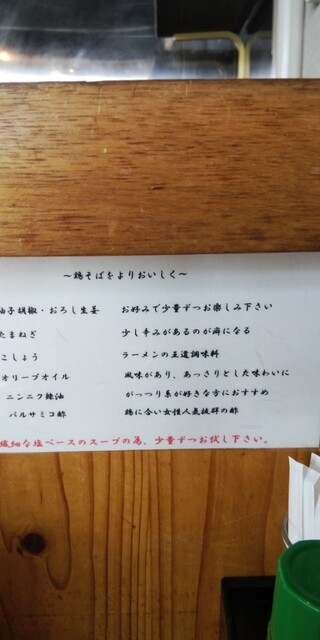 ～鶏そばをよりおいしく～
柚子胡椒・おろし生姜 お好みで少量ずつお楽しみ下さい
たまねぎ 少し辛みがあるのが癖になる
こしょう ラーメンの王道調味料
オリーブオイル 風味があり、あっさりとした味わいに
ニンニク辣油 がっつり系が好きな方におすすめ
バルサミコ酢 鶏に合い女性人気抜群の酢
繊細な塩ベースのスープの為、少量ずつお試し下さい。